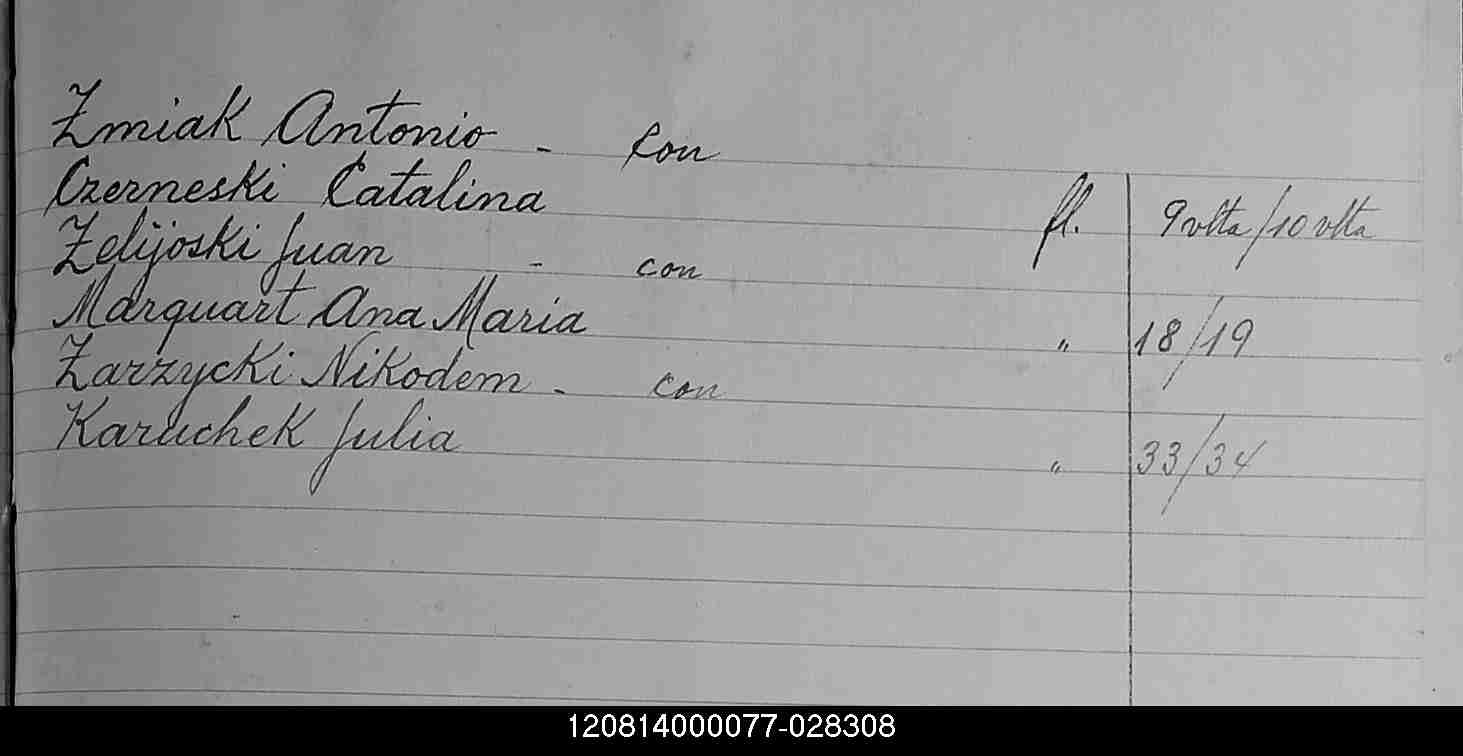 Zmiak Antonio - Con
Czerneski Catalina fl. 9 vlta/10 vlta
Zelijoski Juan - con
Marquart Ana Maria " 18/19
Zarzycki Nikodem - con
Karuchek Julia " 33/34
120814000077-028308